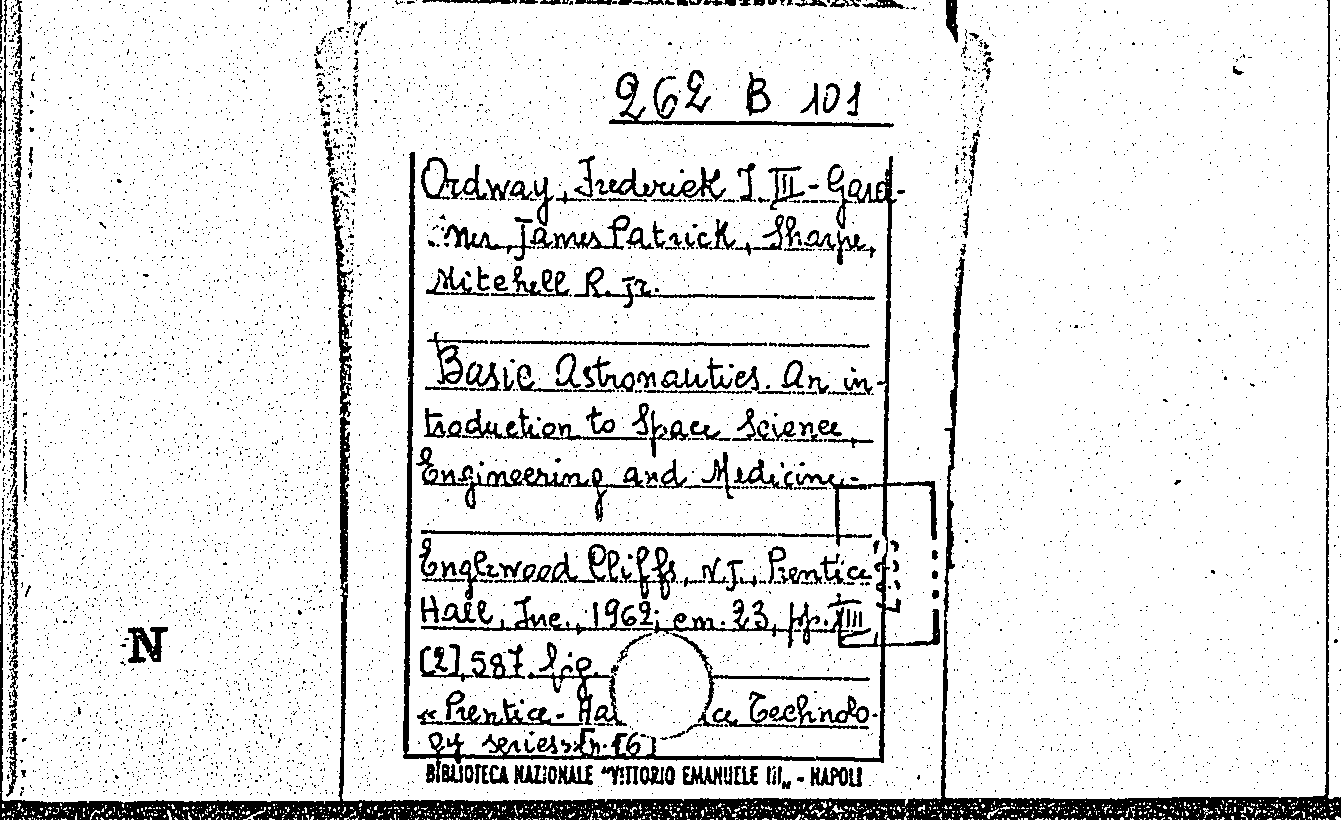 262 B 101
Ordway, Frederick I. III - Gard-
ner, James Patrick, Sharpe,
Mitchell R. Jr.
Basic Astronautics. An in-
troduction to Space Science,
Engineering and Medicine.-
Englewood Cliffs, N.J., Prentice
Hall, Inc., 1962; cm. 23, pp. XIII
[2], 587. fig.
« Prentice- Ha ce Technolo-
gy series» [n. [6]
BIBLIOTECA NAZIONALE "VITTORIO EMANUELE III„ - NAPOLI
N